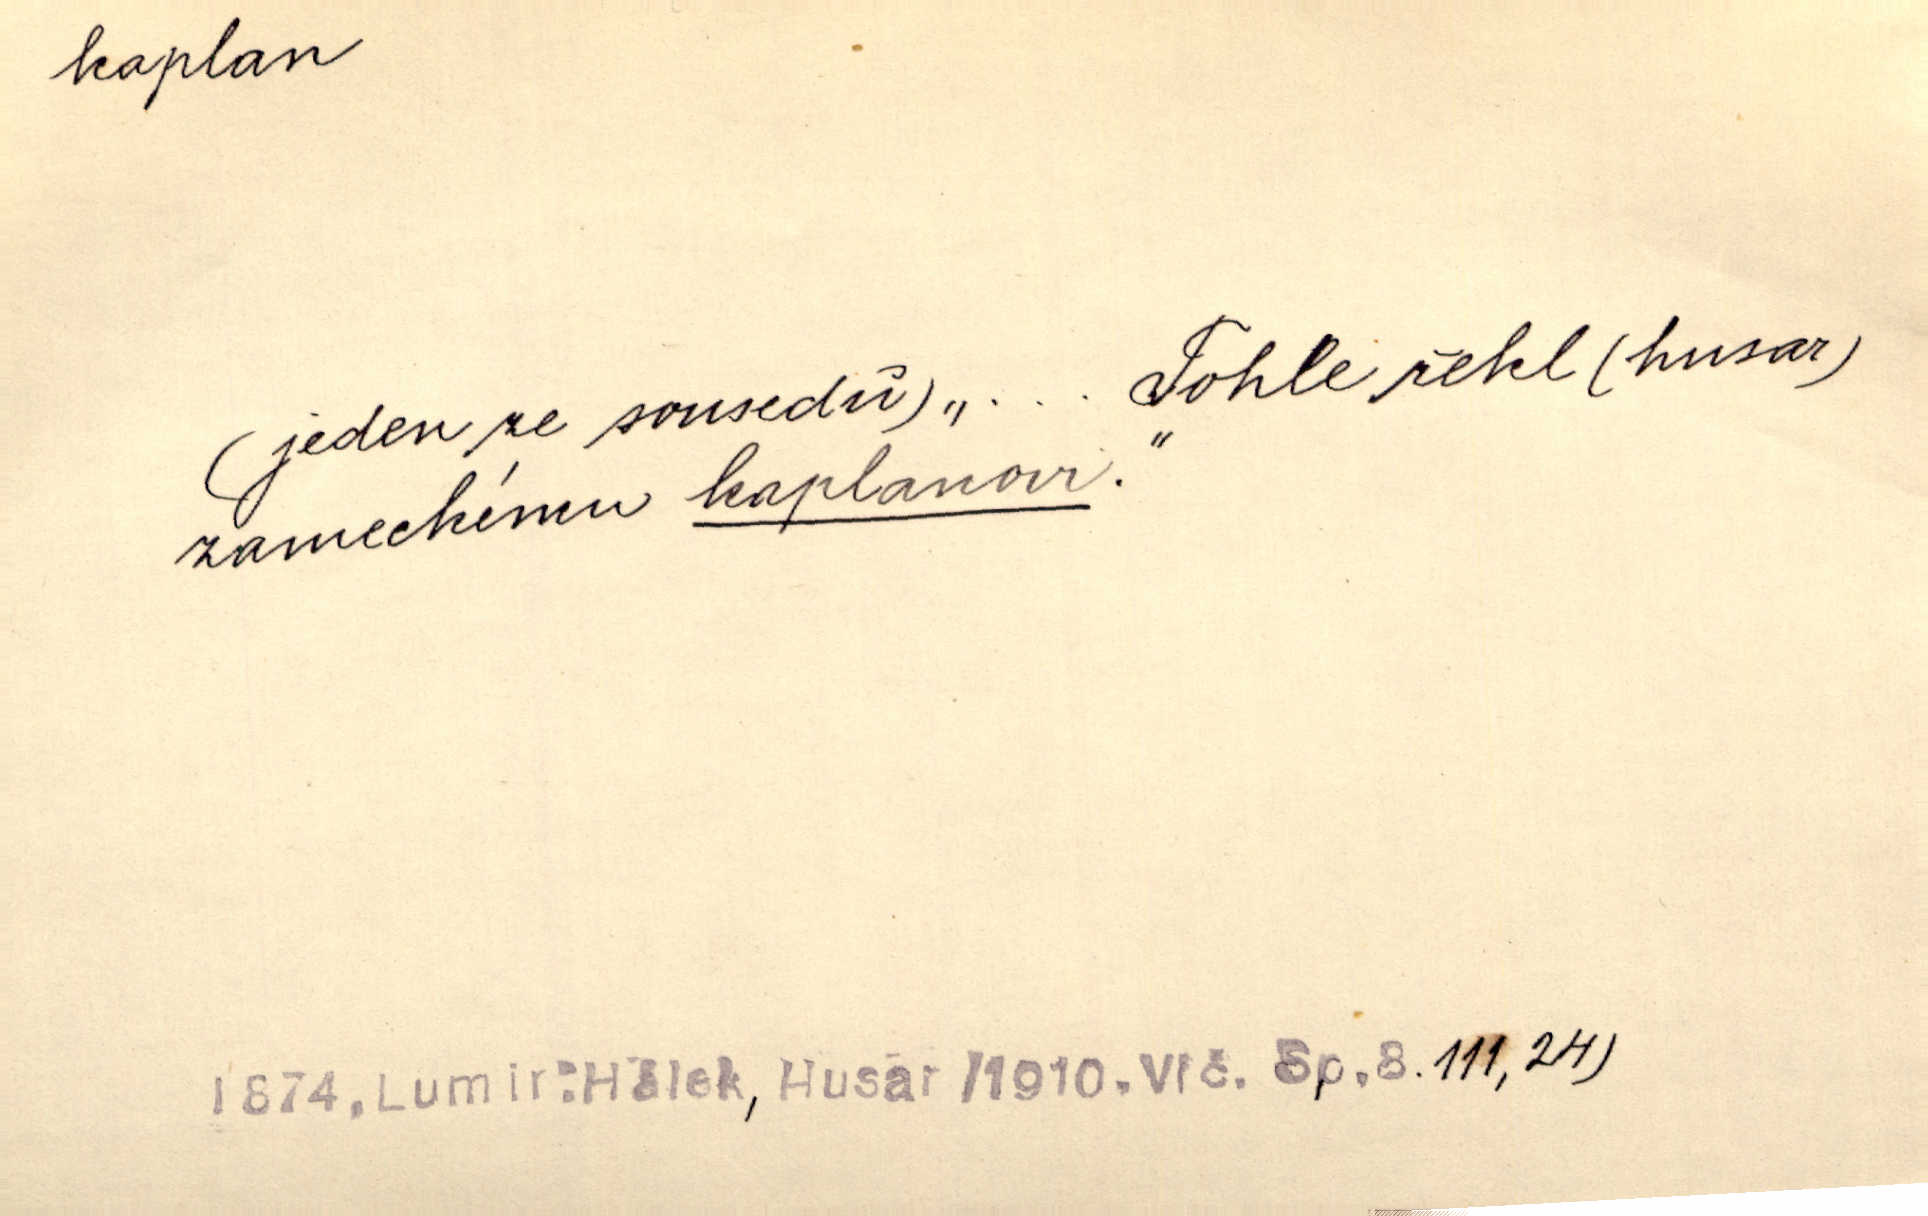 kaplan
(jeden ze sousedů) „ . . . Tohle řekl (husar)
zameckému kaplanovi."
1874. Lumír: Hálek, Husar /1910. Vlč. Sp. 8. 111, 24)